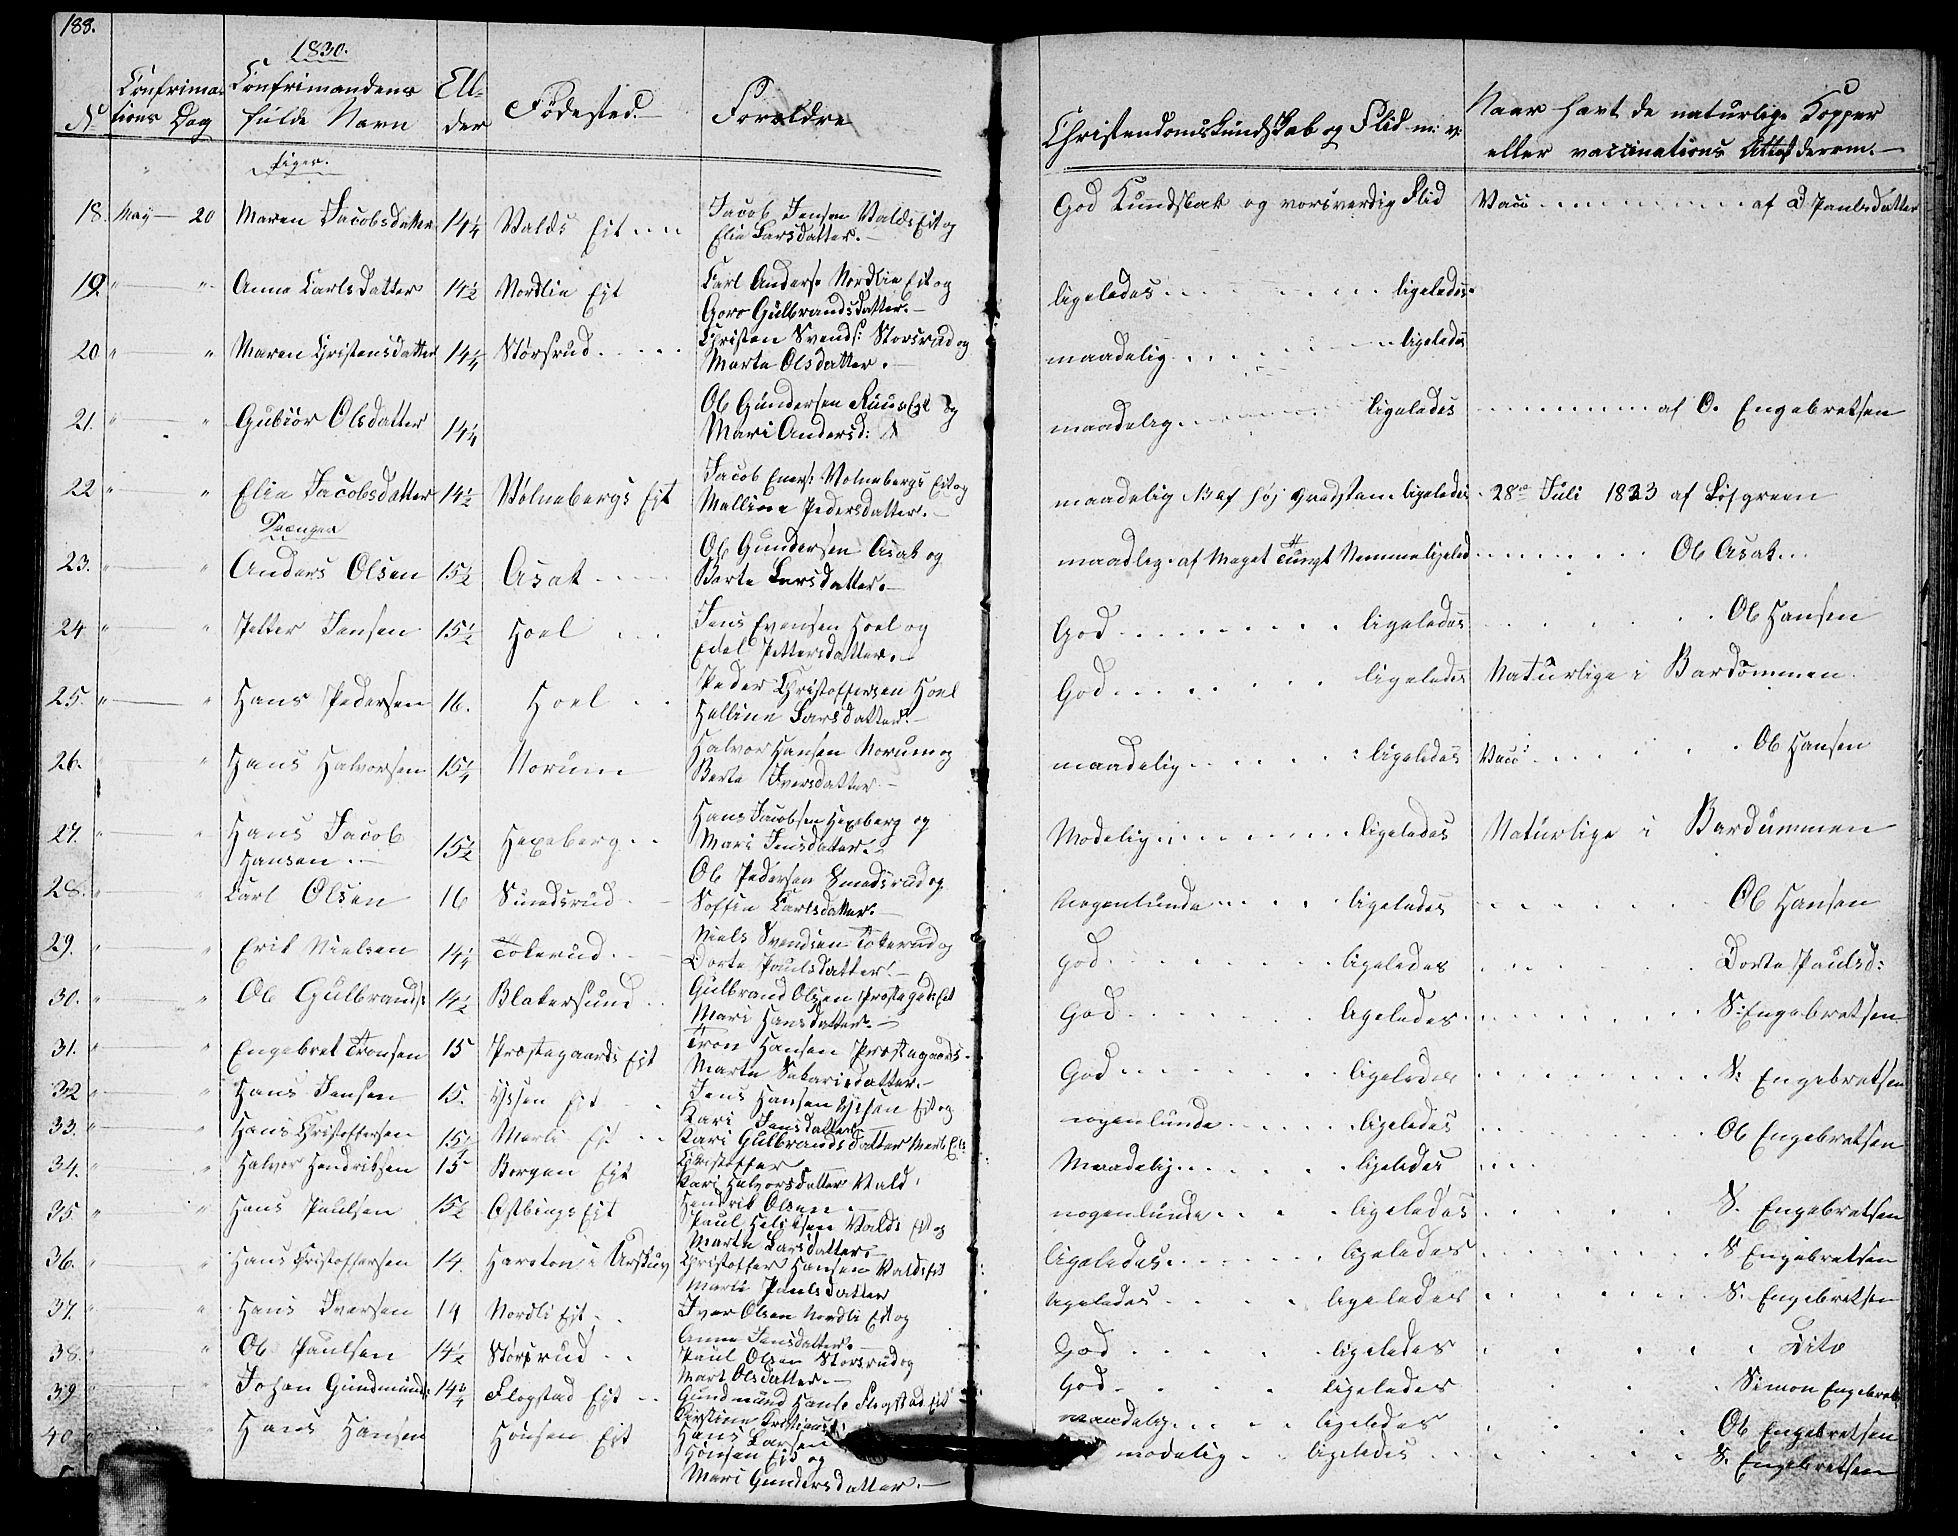 188.
1830.
No
Confrima-
tions Dag
Confrimandens
fulde Navn
All-
der
Fødested.
Foreldre
Christendoms Kundskab og Flid m: v:
Naar havt de naturlige Kopper
eller vaccinations Attest derom.
Piger.
18. May 20 Maren Jacobsdatter 14 1/4 Valds Eit
Jacob Jensen Valds Eit og
Elie Larsdatter.
God Kundskab og Flid Vacc af D Paulsdatter
19. " " Anne Carlsdatter 14 1/2 Nordlie Eit
Carl Anders: Nordlie Eit og
Goro Gulbrandsdatter.
ligeledes ligeledes
20 " " Maren Christensdatter 14 1/4 Størsrud
Christen Svends: Storsrud og
Marte Olsdatter.
maadelig ligeledes
21. " " Gubiør Olsdatter 14 1/4
Ole Gundersen Eit og
Mari Andersd:
maadelig ligeledes af O. Engebretsen
22 " " Elie Jacobsdatter 14 1/2 Vølnebergs Eit
Jacob Volnebergs Eit og
Malline Pedersdatter.
maadelig ligeledes 28de Juli 1823 af Løfgreen
Drænger
23. " " Anders Olsen 15 1/2 Asak
Ole Gundersen Asak og
Berte Larsdatter.
maadleg. af Meget Tungt Nemme ligeled Ole Asak
24 " " Petter Jensen 15 1/2 Hoel
Jens Evensen Hoel og
Edel Pettersdatter.
God ligeledes Ole Hansen
25. " " Hans Pedersen 16. Hoel
Peder Christoffersen Hoel
Helline Larsdatter.
God ligeledes Naturlige i Bardommen.
26. " " Hans Halvorsen 15 1/4 Norum
Halvor Hansen Norum og
Berte Iversdatter
maadelig ligeledes Vacc Ole Hansen
27. " " Hans Jacob
Hansen 15 1/2 Hexeberg
Hans Jacobsen Hexeberg og
Mari Jensdatter.
Modelig ligeledes Naturlige i Bardummen
28. " " Carl Olsen 16 Smedsrud
Ole Pedersen Smedsrud og
Soffie Carlsdatter.
Nogenlunde ligeledes Ole Hansen
29. " " Erik Nielsen 14 1/4 Tokerud
Niels Svendsen Tokerud og
Dorte Paulsdatter.
God ligeledes Dorte Paulsd:
30. " " Ole Gulbrands: 14 1/2 Blakersund
Gulbrand Olsen Eit
Mari Hansdatter.
God ligeledes S: Engebretsen
31. " " Engebret Tronsen 15 Præstegaards Eit
Tron Hansen Præstegaards
Marte Sakariedatter.
God ligeledes S. Engebretsen
32 " " Hans Jensen 15. Eit
Jens Hansen Eit og
Kari Jensdatter
nogenlunde ligeledes Ole Engebretsen
33. " " Hans Christoffersen 15 1/4 Merli Eit
Kari Gulbrandsdatter Merli
Christoffer
Maadelig ligeledes
34. " " Halvor Hendriksen 15 Borgen Eit
Kari Halvorsdatter Vald
Hendrik Olsen
nogenlunde ligeledes S. Engebretsen
35 " " Hans Paulsen 15 1/2 Østbings Eit
Paul Valds Eit og
Marte Larsdatter.
ligeledes ligeledes S Engebretsen
36. " " Hans Cristoffersen 14. i Urskug
Christoffer Hansen Valds Eit
Marie Paulsdatter
ligeledes ligeledes S. Engebretsen
37. " " Hans Iversen 14 Nordli Eit
Iver Olsen Nordli Eit og
Anne Jensdatter.
God ligeledes Dito
38. " " Ole Paulsen 14 1/2 Størsrud
Paul Olsen Storsrud og
Mart Olsdatter.
God ligeledes Simon Engebrets
39 " " Johan Gundmunds: 14 Flogstad Eit
Gundmund Hanse Flogstad Eit
Kirstine
maadelig ligeledes Ole Engebretsen
40. " " Hans Hansen Hønsen Eit
Hans Larsen
Hønsen Eit og
Mari Gundersdatter.
modelig ligeledes S. Engebretsen